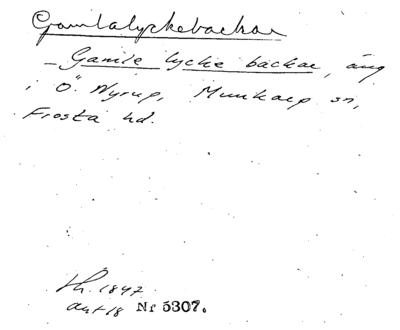 Gamlalyckebackar
– Gamle lycke backar, äng
i Ö. Nyrup, Munkarp sn,
Frosta hd.
Lh. 1847
akt 18 Nr 5307.